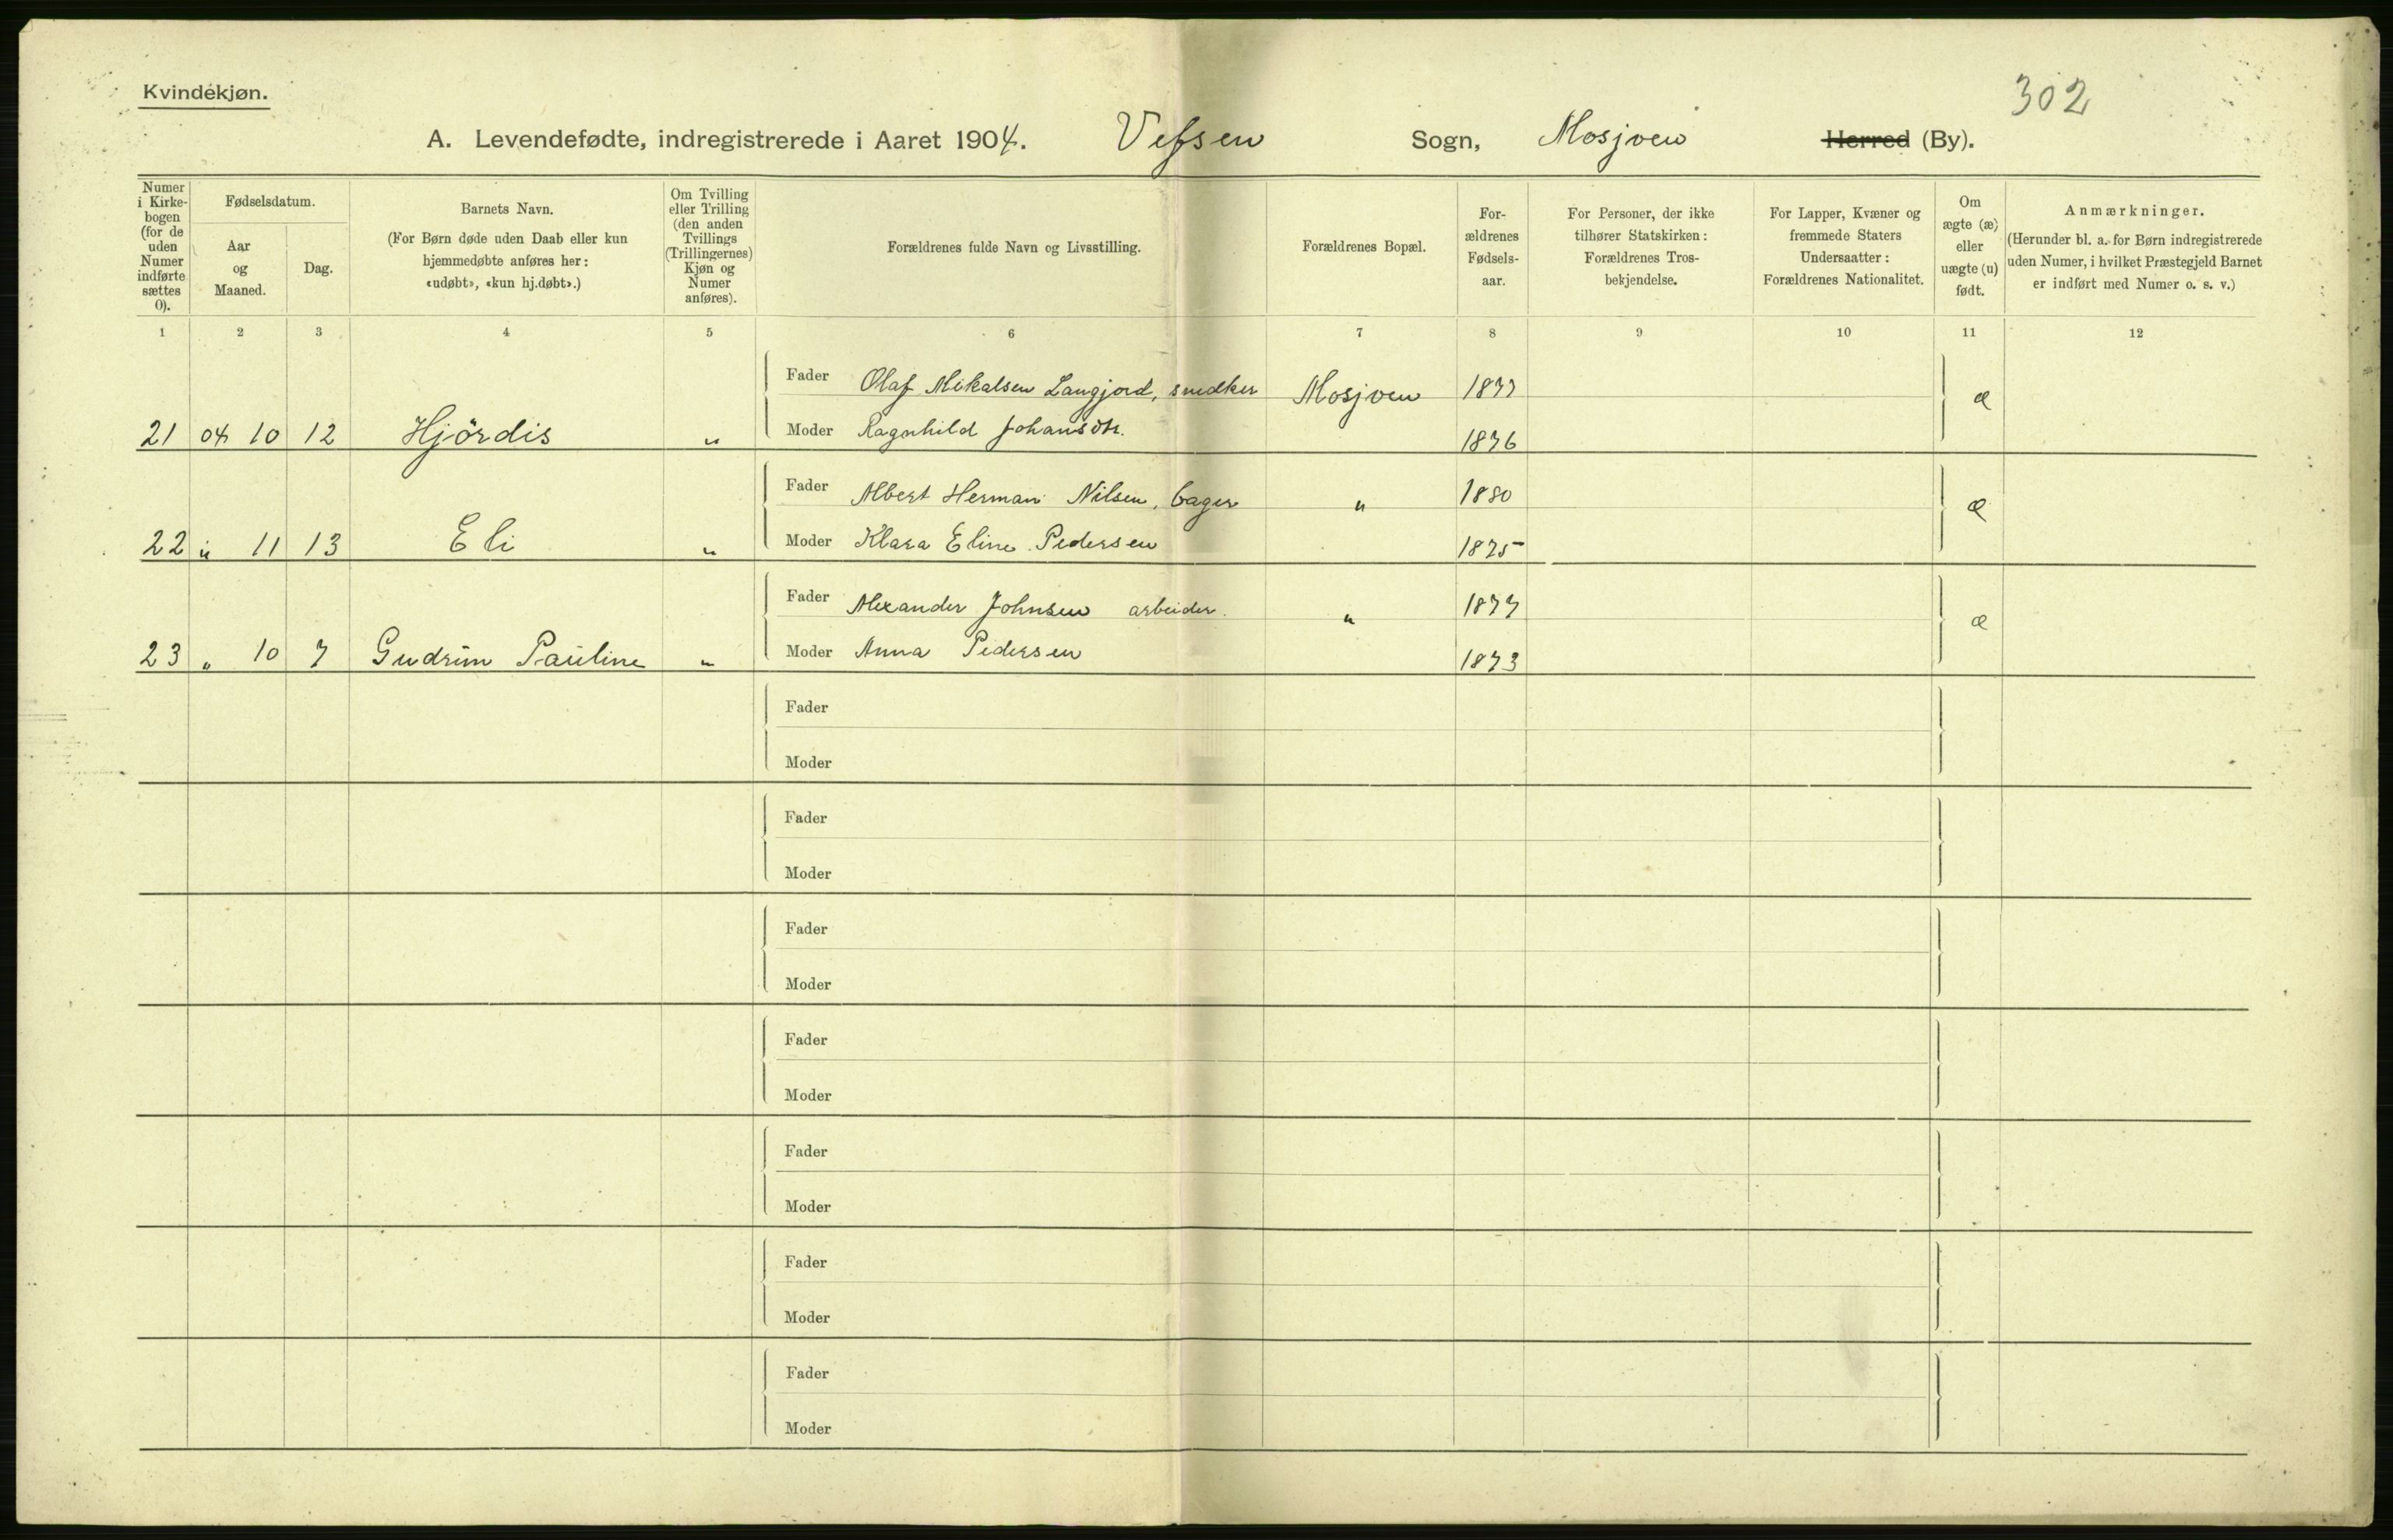 Kvindekjøn.
302
A. Levendefødte, indregistrerede i Aaret 1904. Vefsen Sogn, Mosjøen Herred (By).
Numer i Kirke-bogen (for de uden Numer indførte sættes 0).
Fødselsdatum.
Aar og Maaned.
Dag.
Barnets Navn.
(For Børn døde uden Daab eller kun hjemmedøbte anføres her: «udøbt», «kun hj.døbt».)
Om Tvilling eller Trilling (den anden Tvillings (Trillingernes) Kjøn og Numer anføres).
Forældrenes fulde Navn og Livsstilling.
Forældrenes Bopæl.
For-ældrenes Fødsels-aar.
For Personer, der ikke tilhører Statskirken: Forældrenes Tros-bekjendelse.
For Lapper, Kvæner og fremmede Staters Undersaatter: Forældrenes Nationalitet.
Om ægte (æ) eller uægte (u) født.
Anmærkninger.
(Herunder bl. a. for Børn indregistrerede uden Numer, i hvilket Præstegjeld Barnet er indført med Numer o. s. v.)
1 2 3 4 5 6 7 8 9 10 11 12
Fader Olaf Mikalsen Langjord, snedker Mosjøen 1877 æ
21 04 10 12 Hjördis " Moder Ragnhild Johansdtr. 1876
Fader Albert Herman Nilsen, bager " 1880 æ
22 " 11 13 Eli " Moder Klara Eline Pedersen 1875
Fader Alexander Johnsen arbeider. " 1877 æ
23 " 10 7 Gudrun Pauline " Moder Anna Pedersen 1873
Fader
Moder
Fader
Moder
Fader
Moder
Fader
Moder
Fader
Moder
Fader
Moder
Fader
Moder